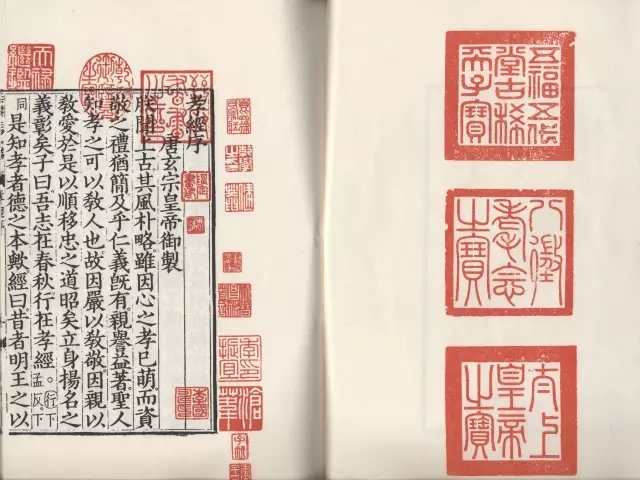 五福五代堂古稀天子寶
八徵耄念之寶
太上皇帝之寶
孝經序
唐玄宗皇帝御製
朕聞上古其風朴略雖因心之孝已萌而資
敬之禮猶簡及乎仁義旣有親譽益著聖人
知孝之可以教人也故因嚴以教敬因親以
教愛於是以順移忠之道昭矣立身揚名之
義彰矣子曰吾志在春秋行在孝經。行下孟反下
同是知孝者德之本歟經曰昔者明王之以
天祿繼鑑
乾隆御覽之寶
季振宜印
滄葦